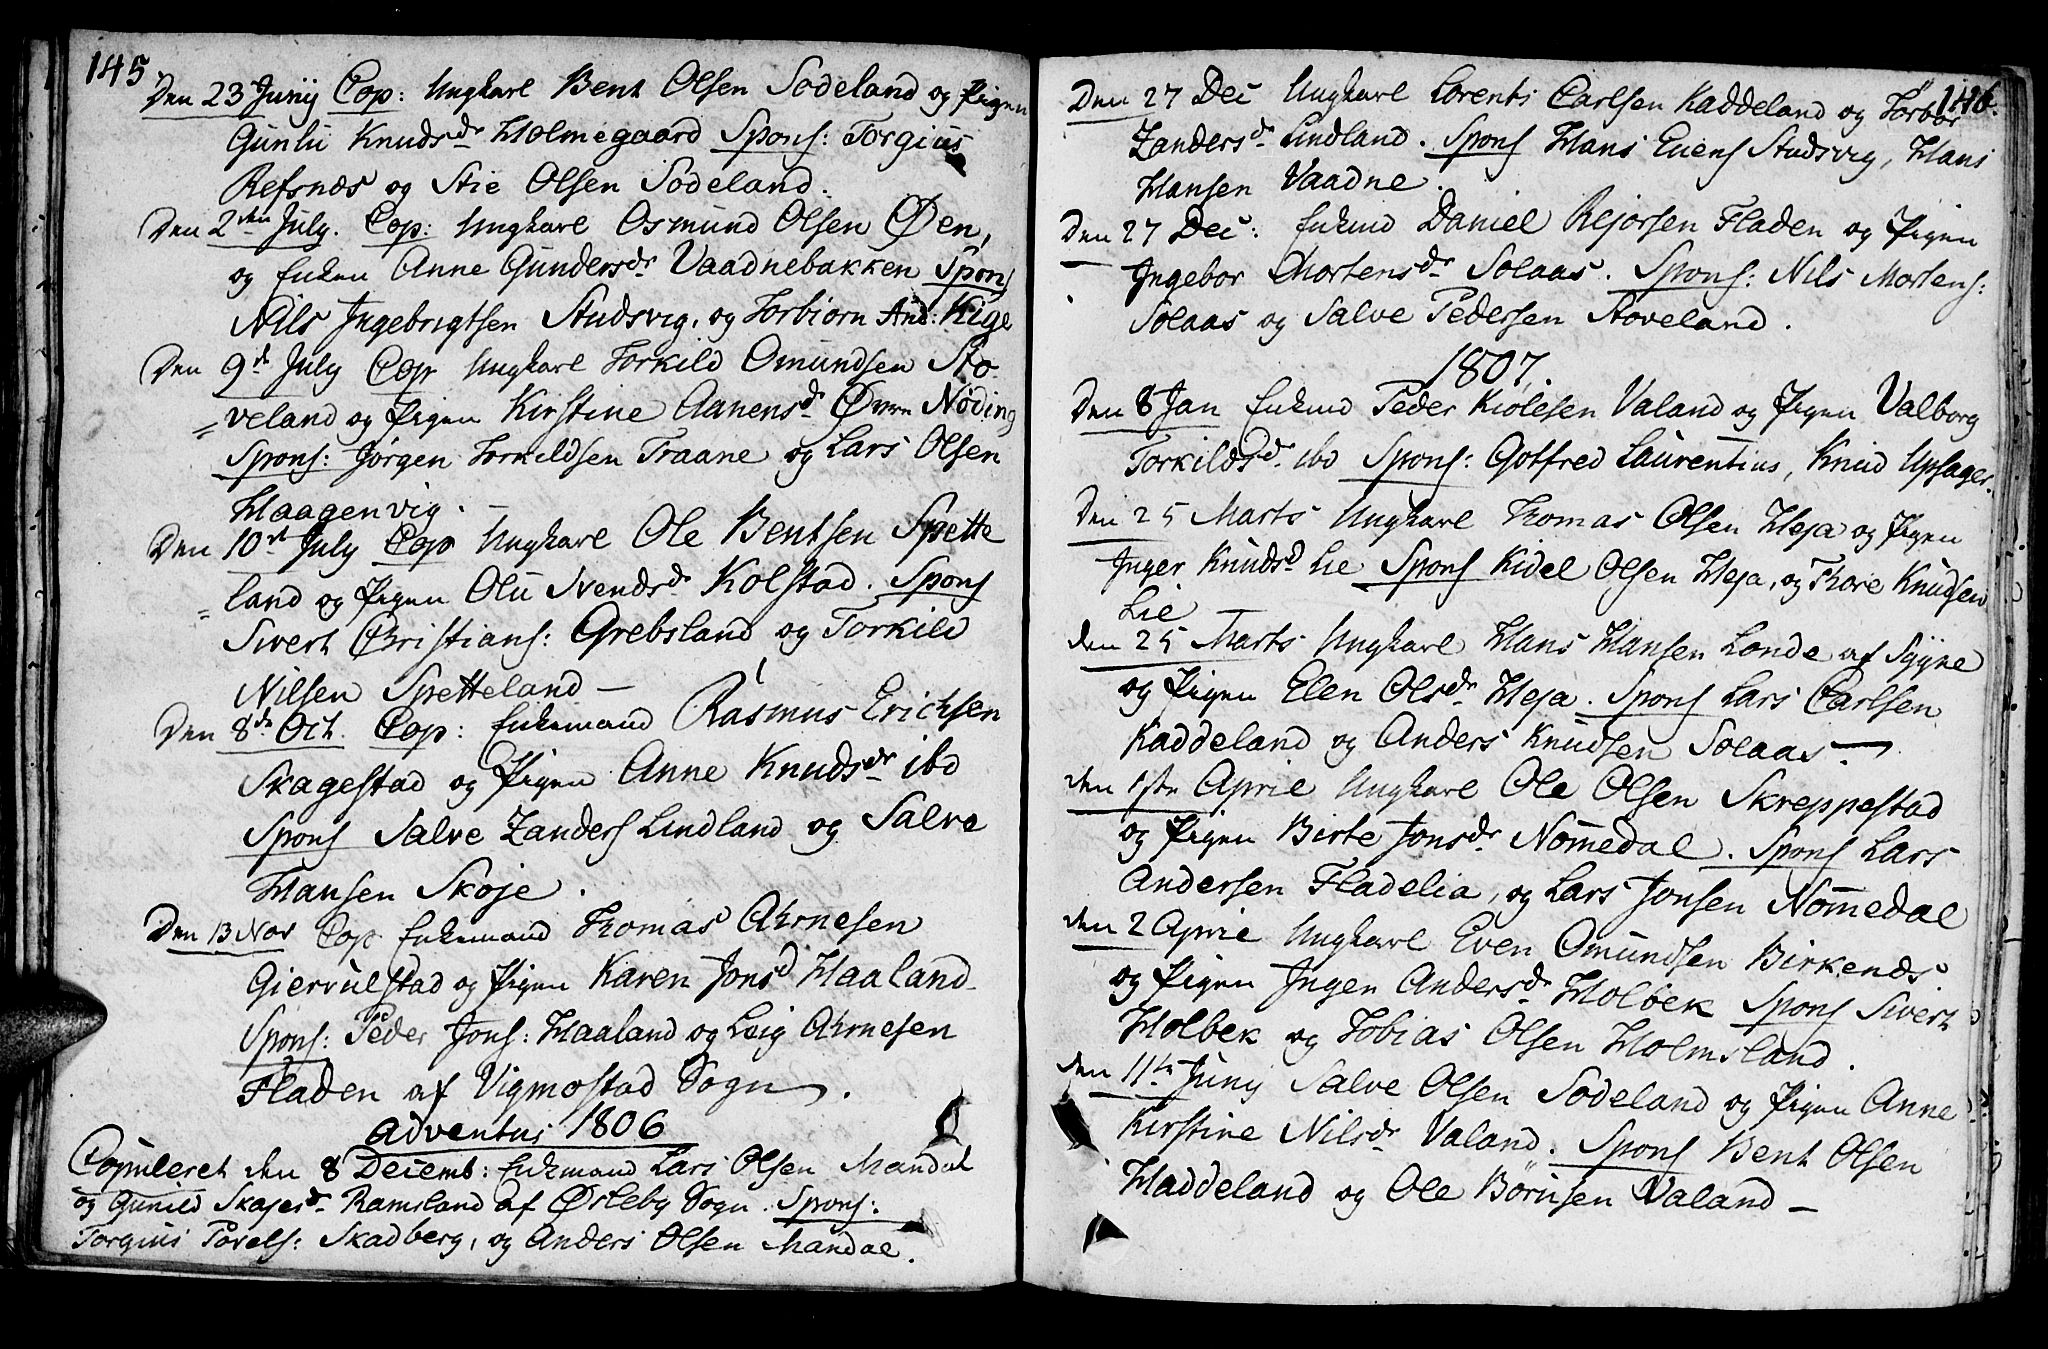 145.
Den 23 Junij Cop: Ungkarl Bent Olsen Sodeland og Pigen
Gunlu Knudsdr Holmegaard Spons: Torgius
Refsnæs og Stie Olsen Sodeland.
Den 2den July. Cop: Ungkarl Osmund Olsen Øen,
og Enken Anne Gundersdr Vaadnebakken Spons
Nils Ingebrigtsen Studsvig, og Torbiørn And: Kige
Den 9de July Cop Ungkarl Torkild Omundsen Sto-
=veland og Pigen Kirstine Aanensdr Øvre Nøding
Spons: Jørgen Torkildsen Traane og Lars Olsen
Haagenvig. –
Den 10de July Cop Ungkarl Ole Bentsen Spette
=land og Pigen Olu Svendsdr Kolstad. Spons
Sivert Christians: Grebsland og Torkild
Nilsen Spetteland –
Den 8de Oct. Cop: Enkemand Rasmus Erichsen
Skagestad og Pigen Anne Knudsdr ibd
Spons Salve Zanders Lindland og Salve
Hansen Skøje.
Den 13 Nov Cop Enkemand Thomas Ahrnesen
Giervulstad og Pigen Karen Jonsd Haaland
Spons: Peder Jons: Haaland og Leig Ahrnesen
Fladen af Vigmostad Sogn.
Adventus 1806
Copuleret den 8 Decemb: Enkmand Lars Olsen Mandal
og Gunild Skajesdr Ramsland af Øsleby Sogn. Spons:
Torgius Povels: Skadberg, og Anders Olsen Mandal.
146.
Den 27 Dec Ungkarl Lorents Carlsen Kaddeland og Torbor
Zandersdr Lindland. Spons Hans Evens Studsvig, Hans
Hansen Vaadne.
Den 27 Dec: Enkmd Daniel Rejorsen Fladen og Pigen
Ingebor Mortensdr Solaas. Spons: Nils Mortens:
Solaas og Salve Pedersen Stoveland.
1807.
Den 8 Jan Enkmd Peder Kiølesen Valand og Pigen Valborg
Torkildsdr ibd Spons: Gotfred Laurentius, Knud Upsager.
Den 25 Marts Ungkarl Thomas Olsen Heja og Pigen
Inger Knudsd Lie Spons Kidel Olsen Heja, og Thore Knudsen
Lie –
den 25 Marts Ungkarl Hans Hansen Londe af Sygne
og Pigen Elen Olsdr Heja. Spons Lars Carlsen
Kaddeland og Anders Knudsen Solaas –
den 1ste April Ungkarl Ole Olsen Skreppestad
og Pigen Birte Jonsdr Nomedal. Spons Lars
Andersen Fladelia, og Lars Jonsen Nomedal
den 2 April Ungkarl Even Omundsen Birkenæs
og Pigen Ingen Andersdr Holbek Spons Sivert
Holbek og Tobias Olsen Holmsland.
den 11te Junij Salve Olsen Sodeland og Pigen Anne
Kirstine Nilsdr Valand. Spons Bent Olsen
Haddeland og Ole Børusen Valand –